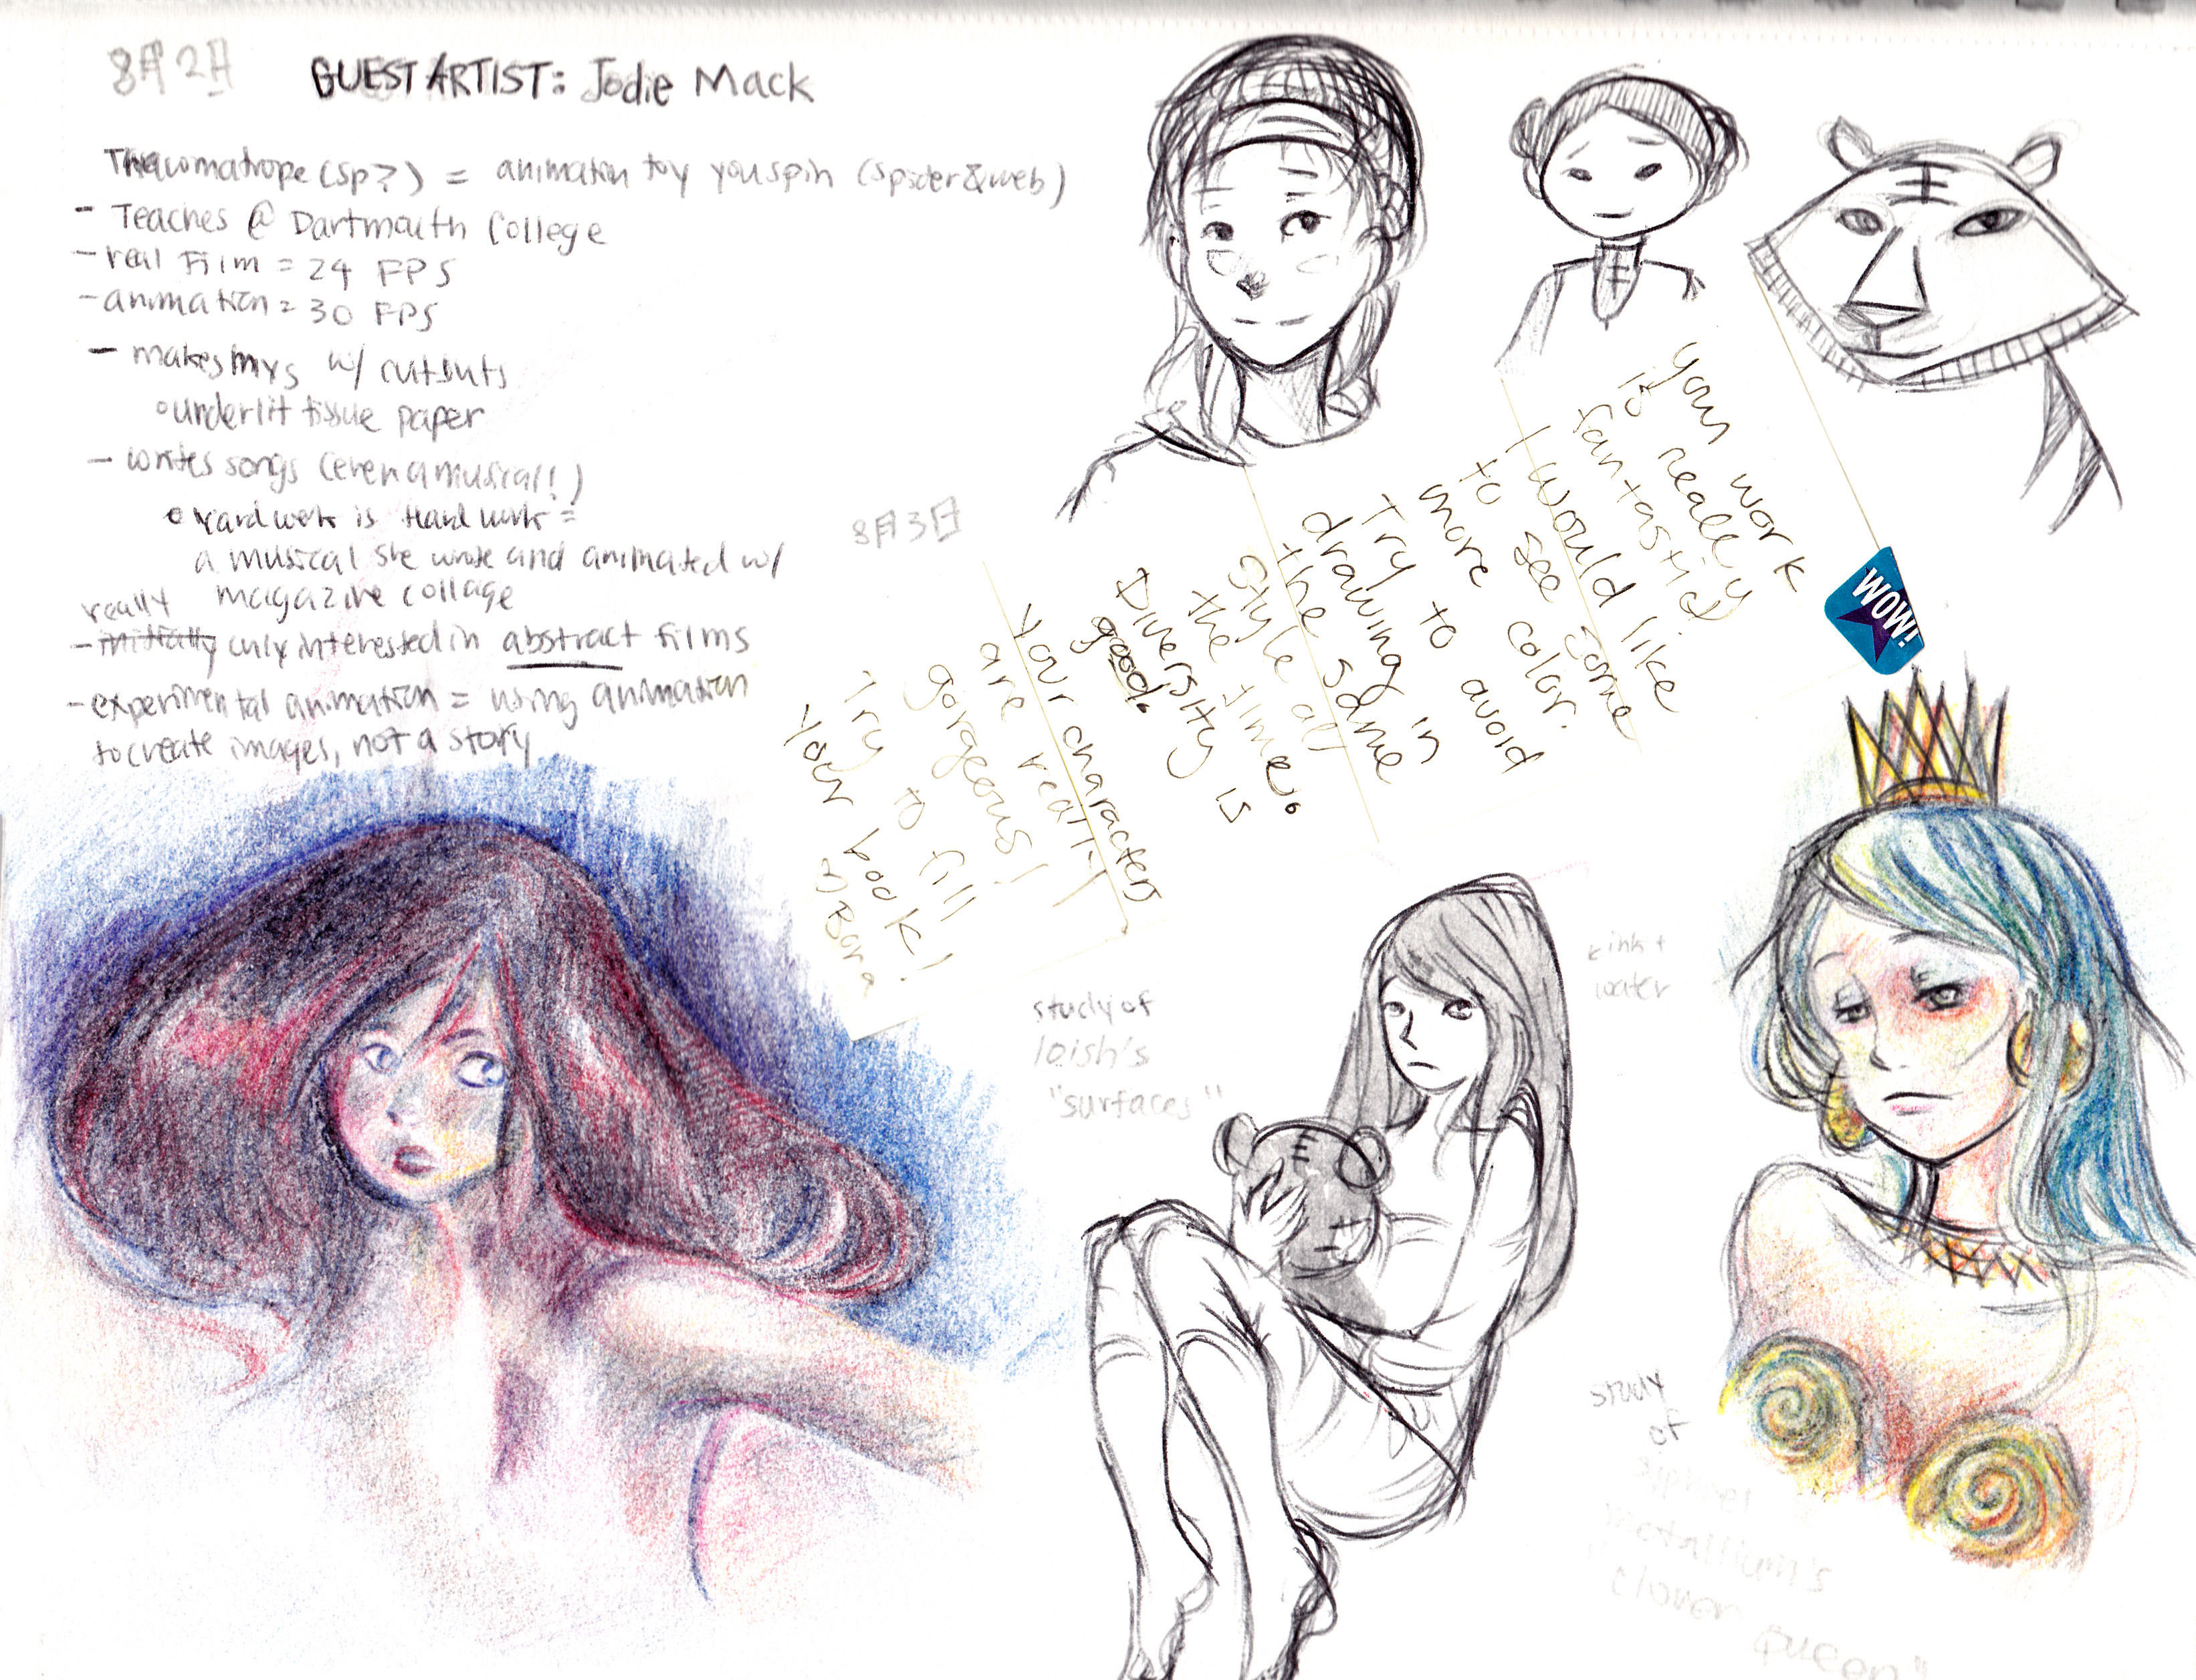 8月2日
GUEST ARTIST: Jodie Mack
Thaumatrope (sp?) = animation toy you spin (spider & web)
- Teaches @ Dartmouth College
- real Film = 24 FPS
- animation = 30 FPS
- makes w/ cutouts
◦ underlit tissue paper
- writes songs (even a musical!)
• Yard work is Hard work =
a musical she wrote and animated w/
magazine collage
really
- initially only interested in abstract films
- experimental animation = using animation
to create images, not a story
8月3日
Your work
is really
fantastic!
I would like
to see some
more color.
Try to avoid
drawing in
the same
style all
the time.
Diversity is
good.
Your characters
are really
gorgeous!
Try to fill
your book!
:) Bora
WOW!
study of
loish's
"surfaces"
ink +
water
study
of
metallium's
"clover
queen"